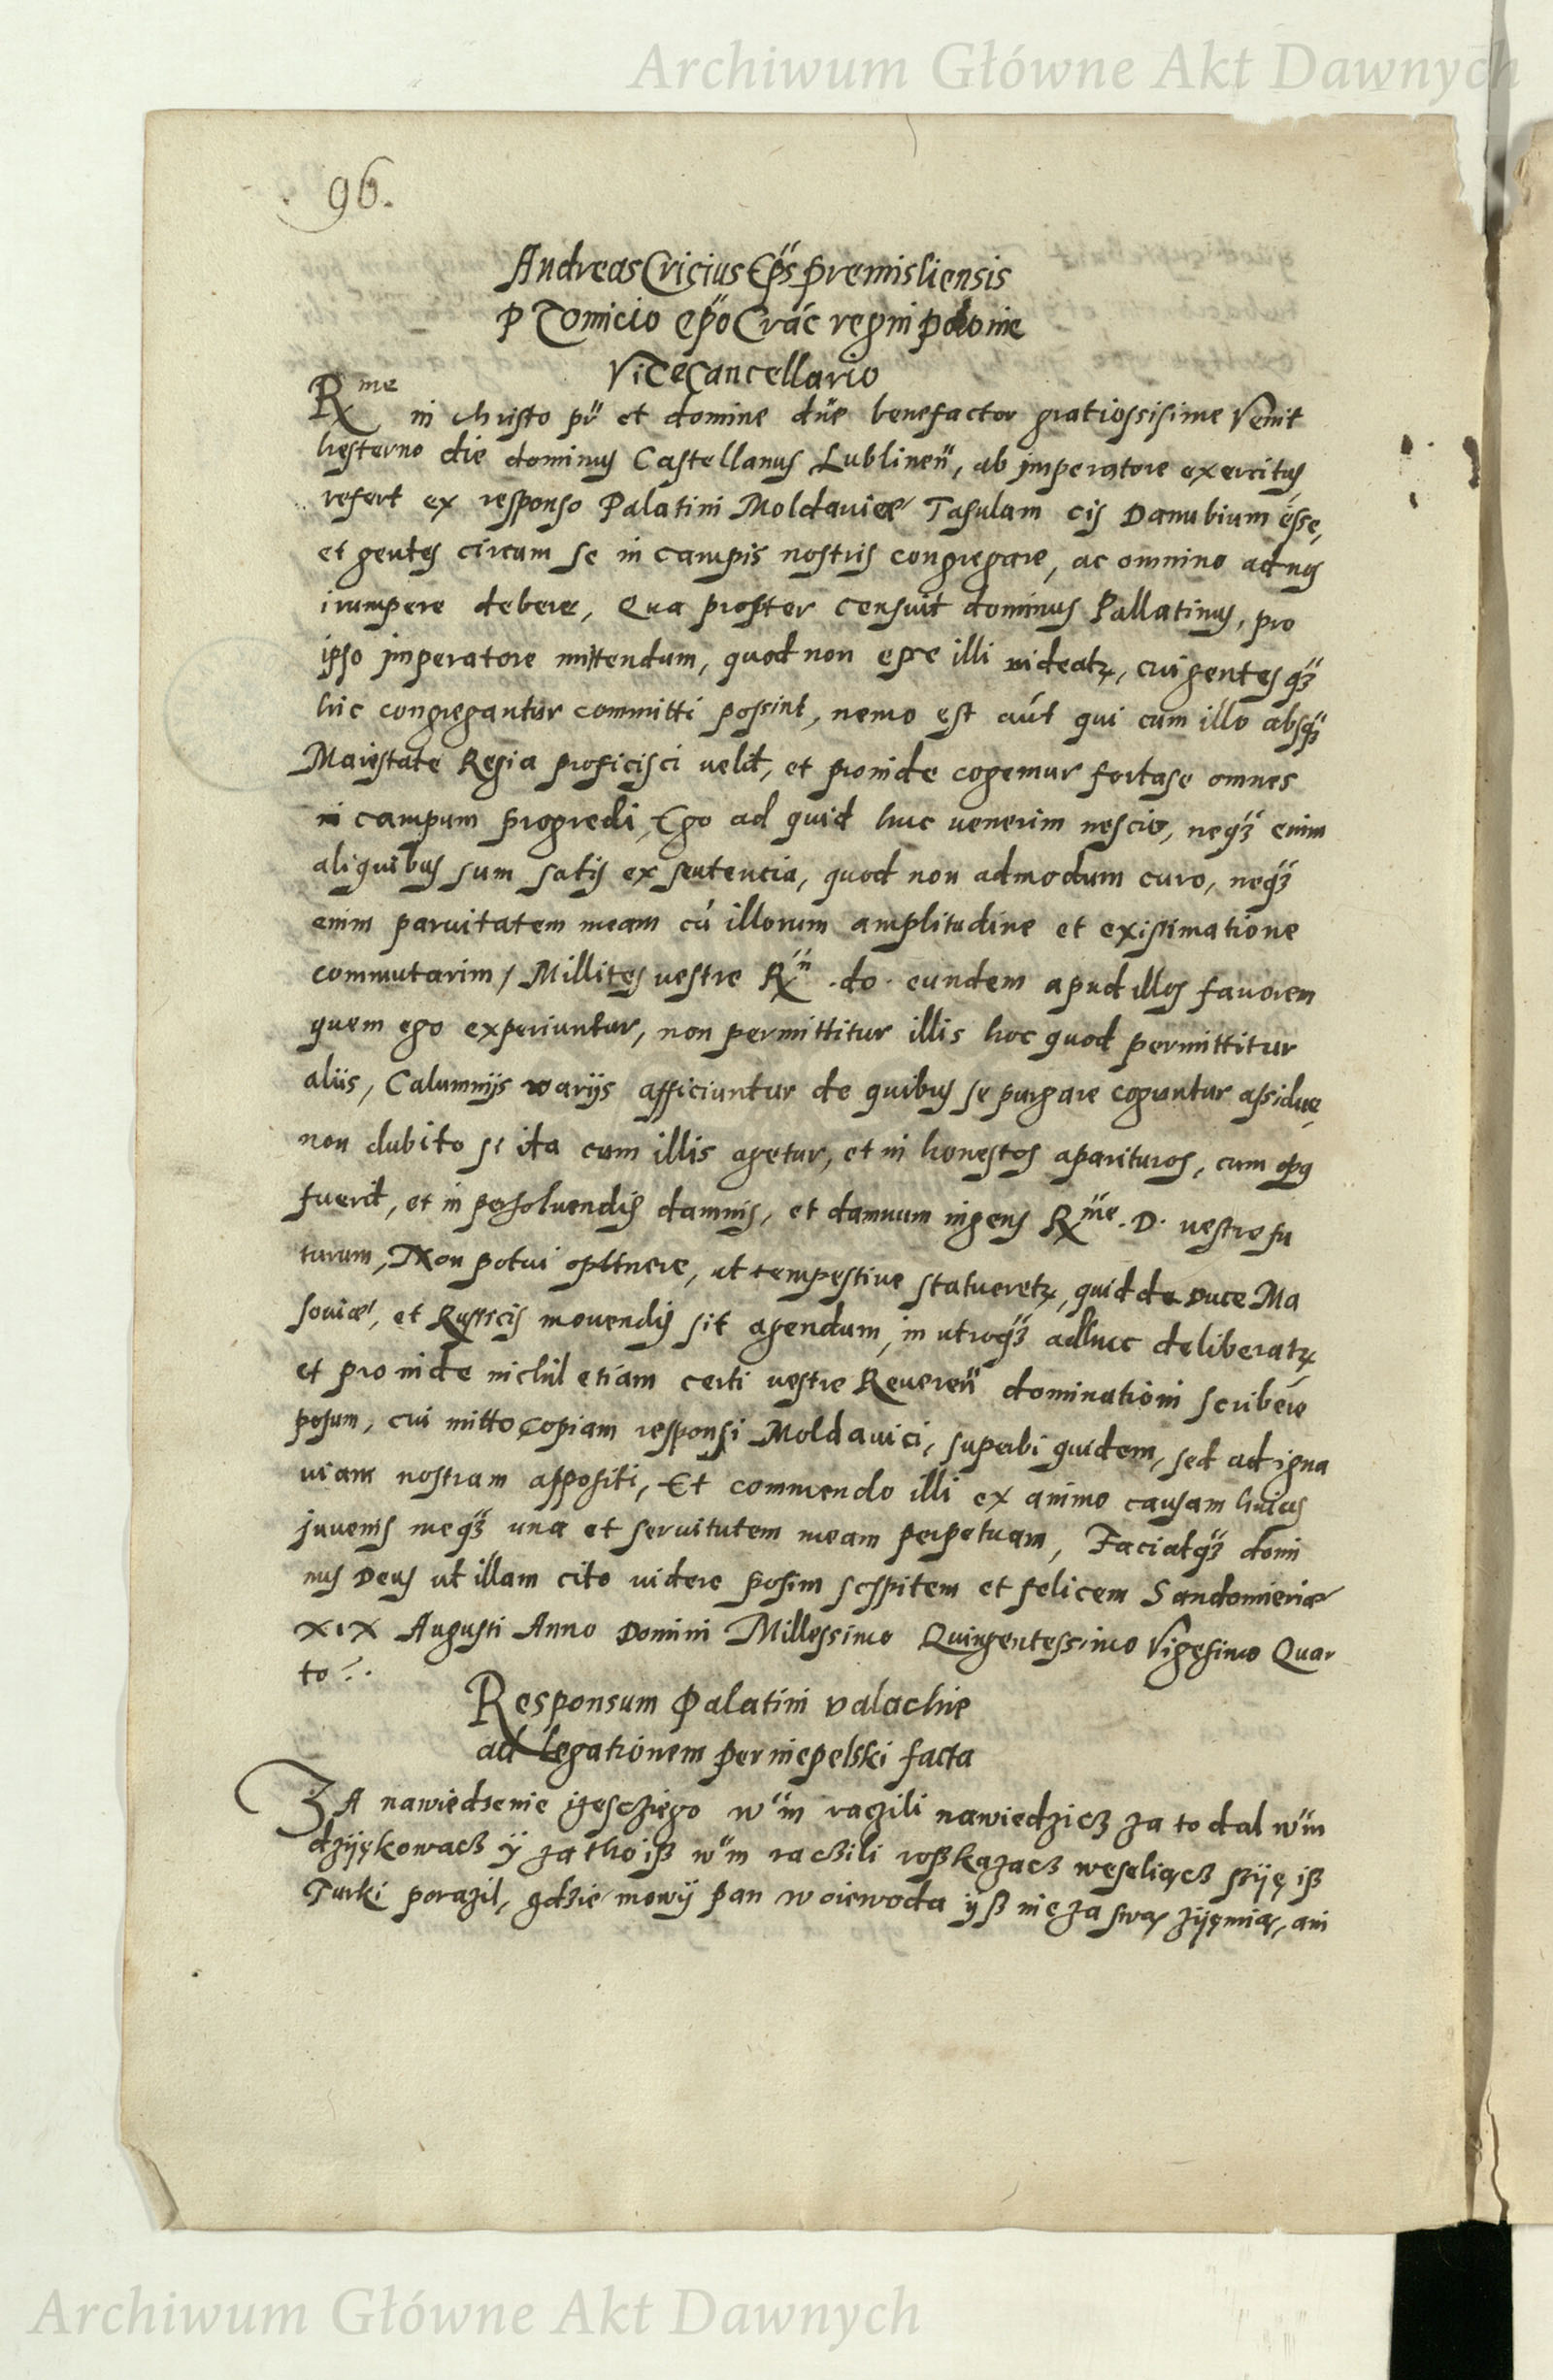 Archiwum Główne Akt Dawnych
96.
Andreas Cricius Ep̃s premisliensis
P Tomicio ep̃o Crac̃ regni polonie
ViCeCancellario
Rme in Christo pr̃ et domine dñe benefactor gratiossisime Venit
hesterno die dominus Castellanus Lublineñ, ab imperatore exercitus
refert ex responso Palatini Moldauiæ Tasulam cis Danubium esse,
et gentes circum se in campis nostris congregare, ac omnino ad nos
irumpere debere, Qua propter censuit dominus Pallatinus, pro
ipso imperatore mittendum, quod non esse illi videatꝛ, cui gentes qꝫ
hic congregantur committi possint, nemo est aūt qui cum illo absqꝫ
Maiestate Regia proficisci uelit, et proinde cogemur fortase omnes
in campum progredi, Ego ad quid huc uenerim nescio, neqꝫ enim
aliquibus sum satis ex sentencia, quod non admodum curo, neqꝫ
enim paruitatem meam cū illorum amplitudine et existimatione
commutarim / Millites vestre Rñ .do. eundem apud illos fauorem
quem ego experiuntur, non permittitur illis hoc quod permittitur
aliis, Calumnijs warijs afficiuntur de quibus se purgare coguntur assidue,
non dubito si ita cum illis agetur, et in honestos aparituros, cum opus
fuerit, et in persoluendis damnis, et damnum ingens Rme. D. vestre fu
turum, Non potui optinere, ut tempestiue statueretꝛ, quid de Duce Ma
souiæ, et Russicis mouendis sit agendum, in utroqꝫ adhuc deliberatꝛ
et proinde nichil etiam certi vestre Reuereñ dominationi scribere
posum, cui mitto copiam responsi Moldauici, superbi quidem, sed ad igna
uiam nostram appositi, Et commendo illi ex animo causam huius
juuenis meqꝫ una et seruitutem meam perpetuam, Faciatqꝫ domi
nus Deus ut illam cito uidere posim sospitem et felicem Sandomieriæ
XIX Augusti Anno Domini Millessimo Quingentessimo Vigesimo Quar
to
Responsum Palatini valachie
ad legationem per niepelski facta
ZA nawiedzenie igesczięgo w m̃ raczili nawiedzicz za to dal w m̃
dzyękowacz ÿ za tho iß w m̃ raczili roßkazacz weseliącz szyę iß
Turki porazil, gdzie mowÿ pan woiewoda ÿß nię za swą zyęmią, ani
Archiwum Główne Akt Dawnych